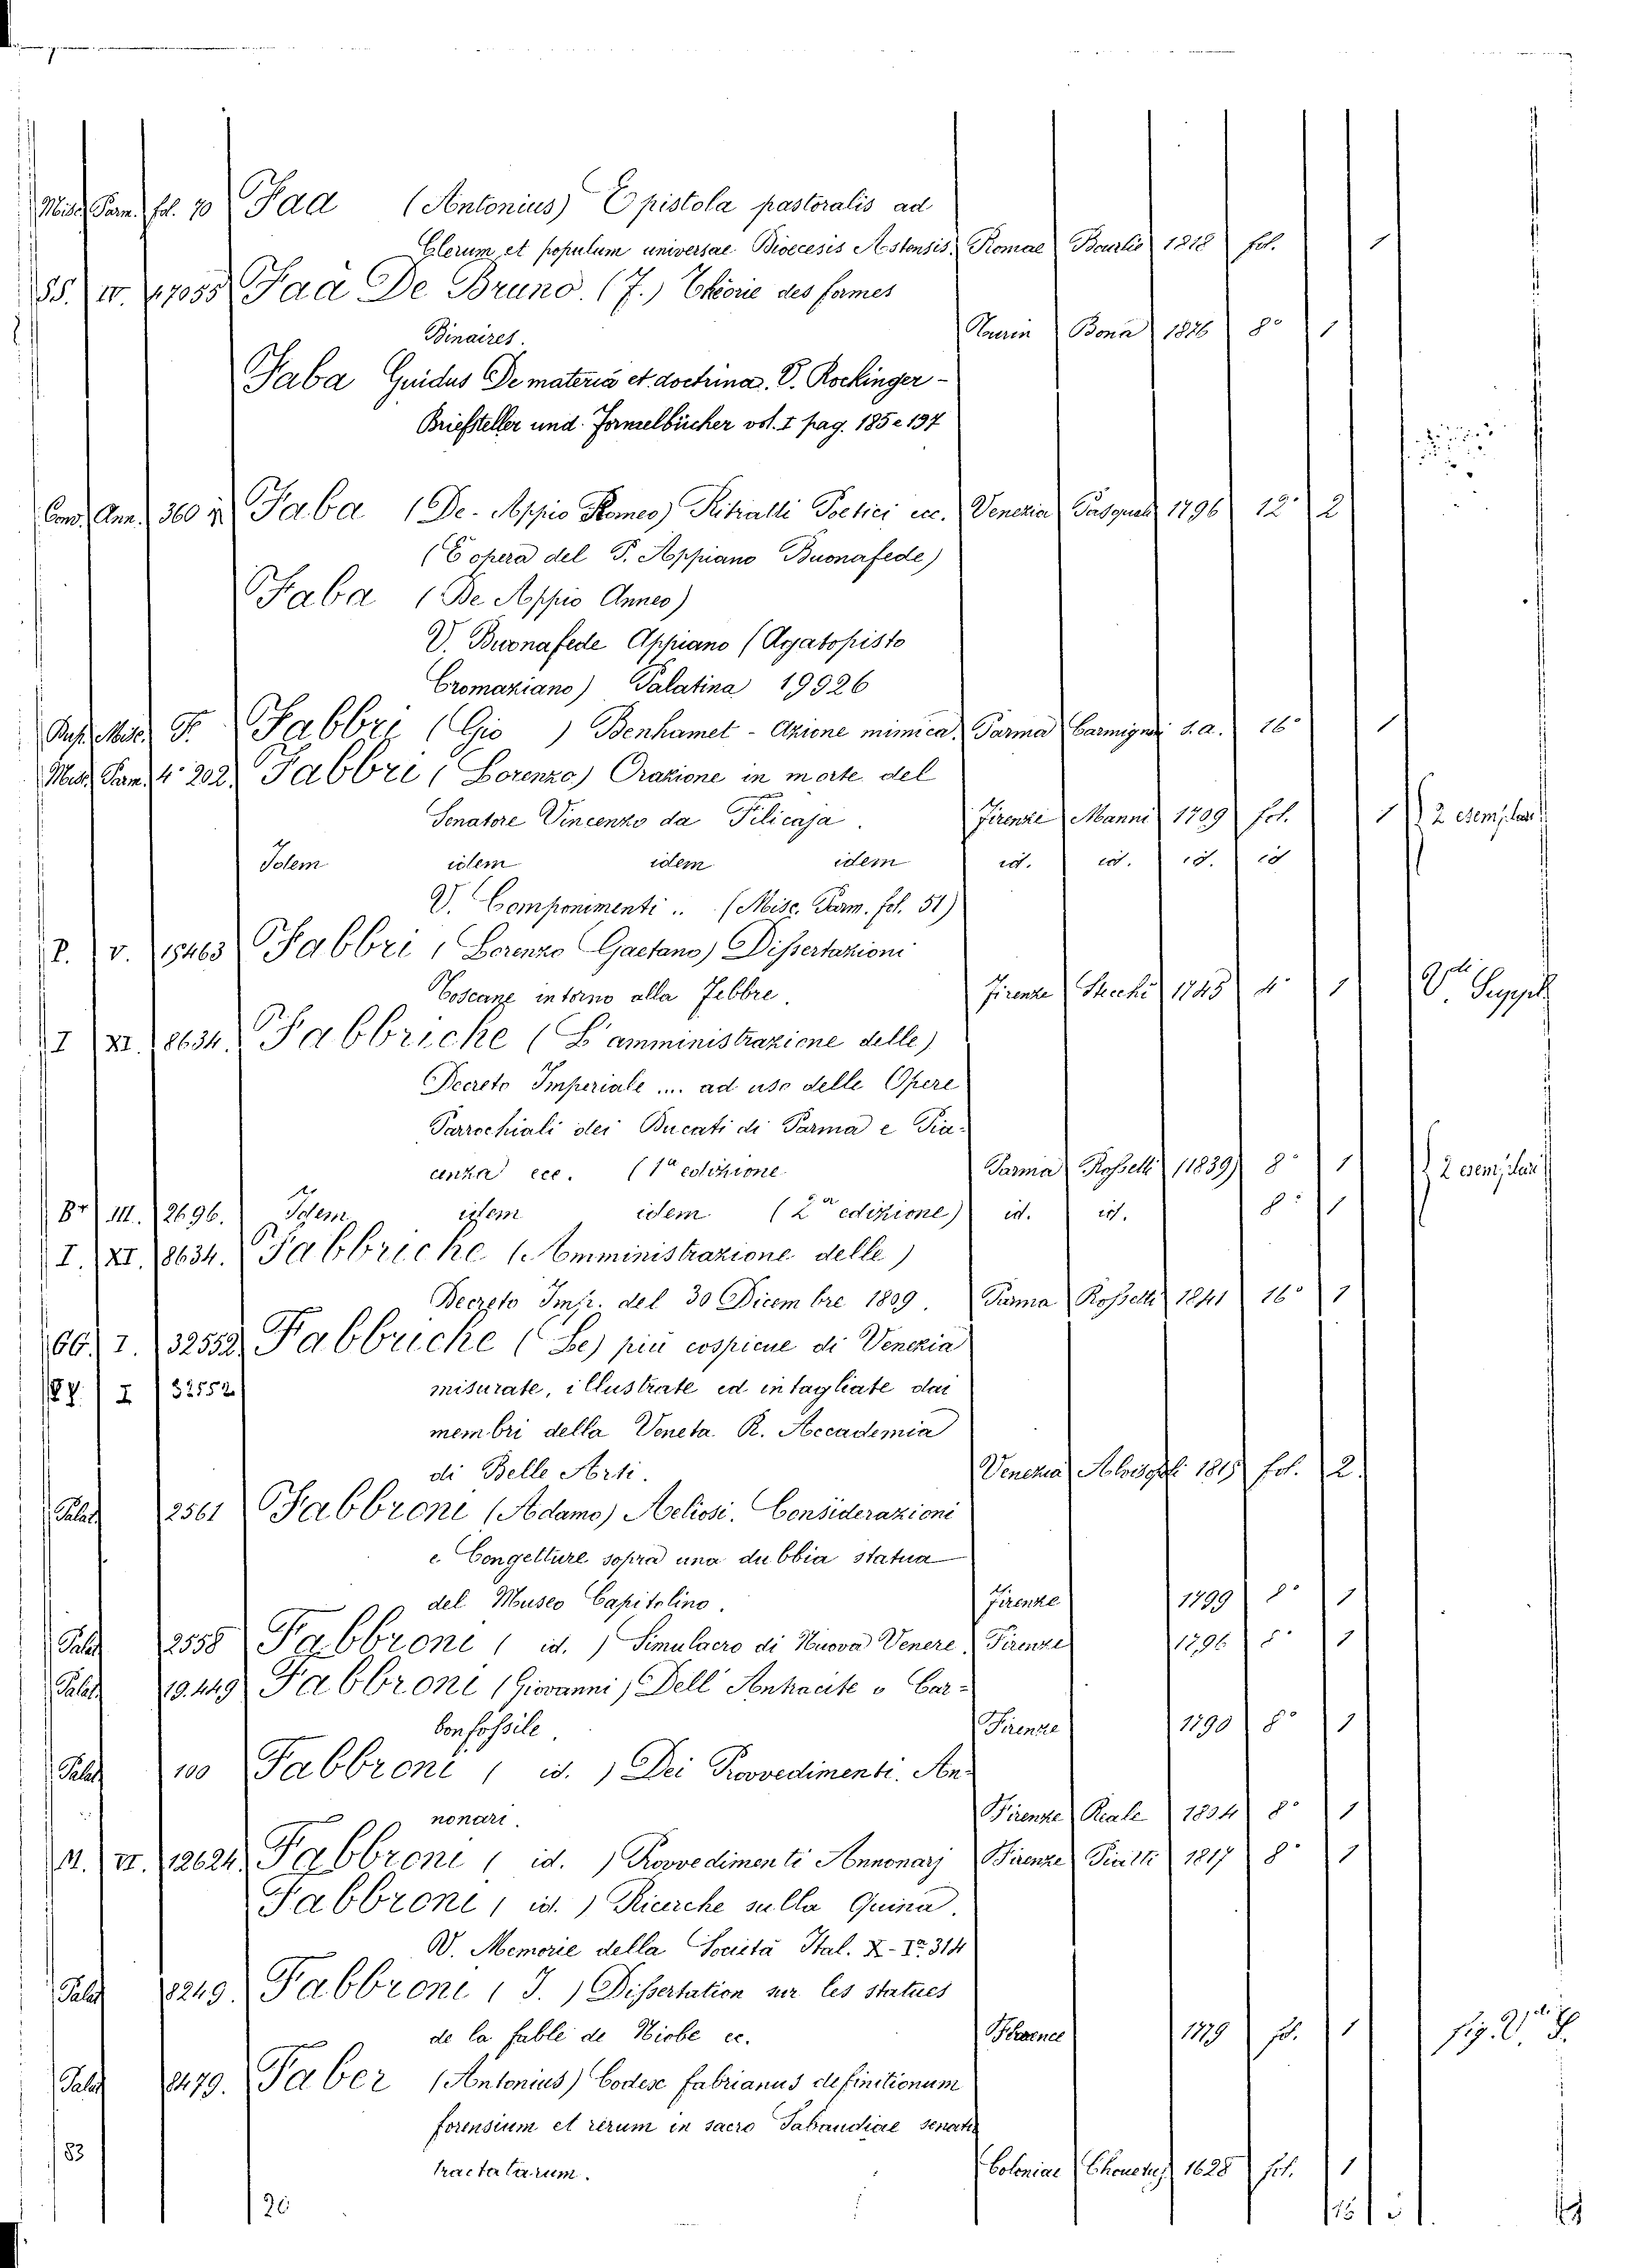 Misc. Parm. fol. 70 Faà (Antonius) Epistola pastoralis ad
Clerum et populum universae Dioecesis Astensis. Romae Bourlié 1818 fol. 1
SS. IV. 17055 Faà De Bruno. (F.) Théorie des formes
Binaires. Turin Bona 1876 8° 1
Faba Guidus De materia et doctrina. V. Rockinger -
Briefsteller und Formelbücher vol. I pag. 185 e 197
Cons. Ann. 360 Faba (De. Appio Romeo) Ritratti Poetici ecc. Venezia Pasquali 1796 12° 2
(È opera del P. Appiano Buonafede)
Faba (De Appio Anneo)
V. Buonafede Appiano (Agatopisto
Cromaziano) Palatina 19926
Misc. F. Fabbri (Gio ) Benhamet - Azione mimica. Parma Carmignani s.a. 16° 1
Misc. Parm. 4° 202. Fabbri (Lorenzo) Orazione in morte del
Senatore Vincenzo da Filicaja. Firenze Manni 1709 fol. 1 2 esemplari
Idem idem idem idem id. id. id. id
V. Componimenti .. (Misc. Parm. fol. 51)
P. V. 15463 Fabbri (Lorenzo Gaetano) Dissertazioni
Toscane intorno alla Febbre. Firenze Stecchi 1745 4° 1 V. Suppl.
I XI. 8634. Fabbriche (L'amministrazione delle)
Decreto Imperiale .... ad uso delle Opere
Parrochiali dei Ducati di Parma e Pia-
cenza ecc. (1ª edizione Parma Rossetti (1839) 8° 1 2 esemplari
III. 2696. Idem idem idem (2ª edizione) id. id. 8° 1
I. XI. 8634. Fabbriche (Amministrazione delle)
Decreto Imp. del 30 Dicembre 1809. Parma Rossetti 1841 16° 1
66. I. 32552. Fabbriche (Le) più cospicue di Venezia
I 32552 misurate, illustrate ed intagliate dai
membri della Veneta R. Accademia
di Belle Arti. Venezia Alvisopoli 1815 fol. 2.
Palat. 2561 Fabbroni (Adamo) Aeliosi. Considerazioni
e Congetture sopra una dubbia statua
del Museo Capitolino. Firenze 1799 8° 1
Palat. 2558 Fabbroni ( id. ) Simulacro di Nuova Venere. Firenze 1796 8° 1
Palat. 19.449 Fabbroni (Giovanni) Dell' Antracite o Car-
bon fossile. Firenze 1790 8° 1
Palat. 100 Fabbroni ( id. ) Dei Provvedimenti An-
nonari. Firenze Reale 1804 8° 1
M. VI. 12624. Fabbroni ( id. ) Provvedimenti Annonarj Firenze Piatti 1817 8° 1
Fabbroni ( id. ) Ricerche sulla Quina.
V. Memorie della Società Ital. X - 314
Palat. 8249. Fabbroni (J. ) Dissertation sur les statues
de la fable de Niobe ec. Florence 1779 fo. 1 fig. V.
Palat. 8479. Faber (Antonius) Codese fabrianus definitionum
forensium et rerum in sacro Sabaudiae senatu
83 tractatarum. Coloniae Chouetus 1628 fol. 1
20